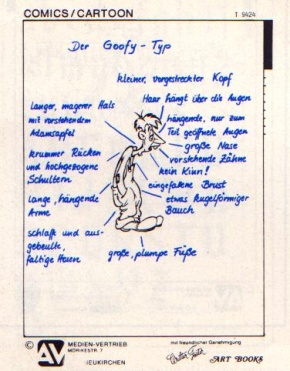 COMICS/CARTOON
T 9424
Der Goofy-Typ
kleiner, vorgestreckter Kopf
Haar hängt über die Augen
langer, magerer Hals
mit vorstehendem
Adamsapfel
hängende, nur zum
Teil geöffnete Augen
große Nase
vorstehende Zähne
kein Kinn!
krummer Rücken
und hochgezogene
Schultern
eingefallene Brust
etwas kugelförmiger
Bauch
lange, hängende
Arme
schlaff und aus-
gebeulte,
faltige Hosen
große, plumpe Füße
©
AV
MEDIEN-VERTRIEB
MÖRIKESTR. 7
NEUKIRCHEN
mit freundlicher Genehmigung
Walter Foster
ART BOOKS